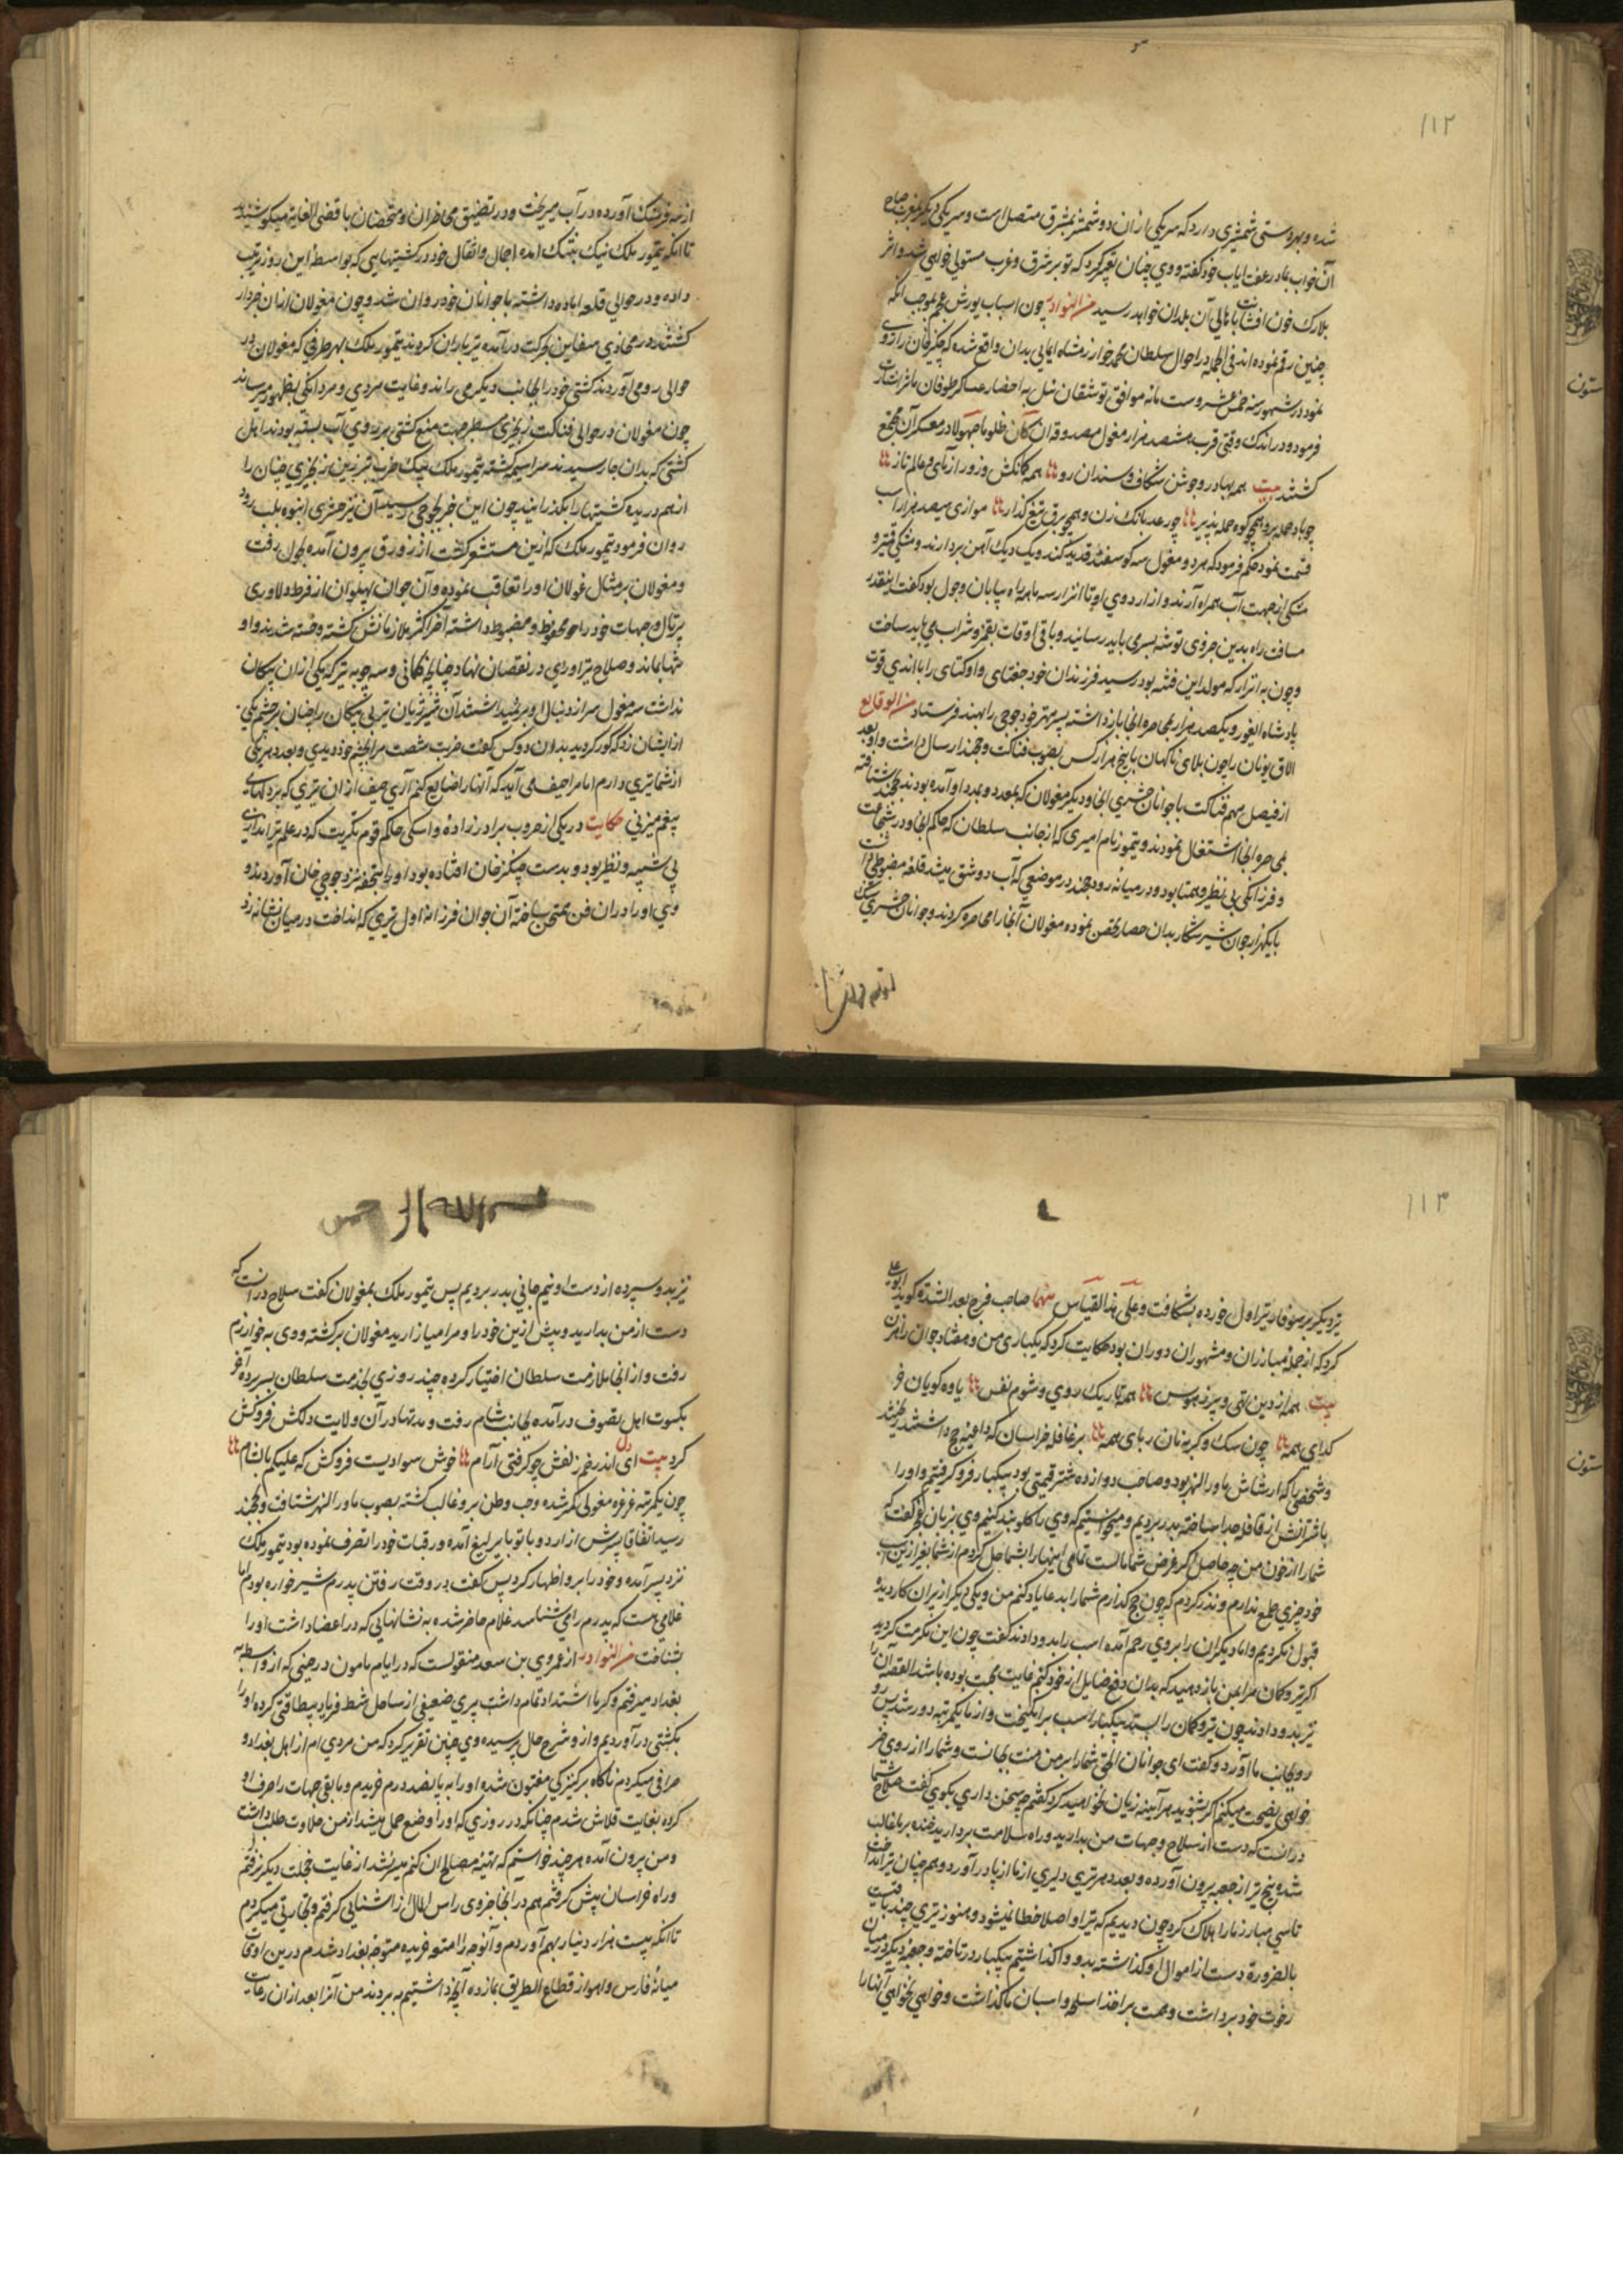 ۱۱۲
شده و بهر دستی شمشیری دارد که هر یکی ازان دو شمشیر بمشرق متصل است و هر یکی دیگر بمغرب صباح
آن خواب بمادر عفت ایاب خود کفته و وی چنان تعبیر کرد که تو بر شرق و غرب مستولی خواهی شد و اثر
بلارک خون افشانت باهالی آن بلدان خواهد رسید من النوادر چون اسباب یورش عجم بموجب انکه
چنین رقم نموده اند فی الجمله در احوال سلطان محمد خوارزمشاه ایمایی بدان واقع شده که چنکیزخان را روی
نمود در شهور سنه خمس عشر و ستمائه موافق توشقان ئیل به احضار عساکر طوفان ماثر اشارت
فرمود و در اندک وقتی قرب هشتصد هزار مغول مصدوقه ان کان ظلوما جهولا در معسکر آن مجمع
کشتند بیت همه بهادر و جوشن شکاف و سندان رو همه کمانکش و زور ازمای و عالم تاز
چو باد حمله بر و همچو کوه حمله پذیر چو رعد بانک زن و همچو برق تیغ کذار موازی سیصد هزار اسب
قسمت نمود حکم فرمود که هر دو مغول سه کوسفند قدید کنند و یک دیک آهن بردارند و مشکی قمیز و
مشکی از جهت آب همراه آرند و از اردوی او تا اترار سه ماهه راه بیابان و چول بود کفت اینقدر
مسافت راه بدین جزوی توشه بسر می باید رسانید و باقی اوقات بقمیز و شراب می باید ساخت
و چون به اترار که مولد این فتنه بود رسید فرزندان خود جغتای و اوکتای را با اندی قوت
پادشاه ایغور و یکصد هزار بمحاصره انجا بازداشته پسر مهتر خود جوجی را بجند فرستاد من الوقایع
الاق نویان را چون بلای ناکهان با پنج هزار کس بصوب فناکت و خجند ارسال داشت و او بعد
از فیصل مهم فناکت با جوانان حشری انجا و دیکر مغولان که بعدد و مدد او آمده بودند بخجند شتافته
بمحاصره انجا اشتغال نمودند و تیمور نام امیری که از جانب سلطان که حاکم انجا و در شجاعت
و فرزانکی بی نظیر و همتا بود و در میانه رود خجند در موضعی که آب دو شق میشد قلعه مضبوطی داشت
با یکهزار جوان شیر شکار بدان حصار تحصن نموده مغولان آنجا را محاصره کردند و جوانان حشری سنک
از سه فرسنک آورده در آب میریخت و در تضییق محاظران و متحصنان باقصی الغایه میکوشیدند
تا انکه تیمور ملک نیک بتنک امده احمال و اثقال خود در کشتیهایی که بواسطه این روز ترتیب
داده و در حوالی قلعه اماده داشته با جوانان خود روان شد و چون مغولان ازان خبردار
کشتند در محاذی سفاین بحرکت درآمده تیر باران کردند تیمور ملک بهر طرفی که مغولان در
حوالی رو می آوردند کشتی خود را بجانب دیکر می راند و غایت مردی و مردانکی بظهور میرساند
چون مغولان در حوالی فناکت زنجیری سطبر جهت منع کشتی بر روی آب بسته بودند اهل
کشتی که بدان جا رسیدند سراسیمه کشته تیمور ملک بیک ضرب تبرزین زنجیری چنان را
از هم دریده کشتیها را بکذرانید چون این خبر بجوجی رسید آن نیز حشری انبوه بلب رود
روان فرمود تیمور ملک که ازین مستشعر کشت از زورق بیرون آمده بچول رفت
و مغولان بر مثال غولان او را تعاقب نموده و آن جوان پهلوان از فرط دلاوری
پرتال و جهات خود را محفوظ و مضبوط داشته آخر اکثر ملازمانش کشته و خسته شدند و او
تنها بماند و صلاح تیر او روی در نقصان نهاد چنانچه کمانی و سه چوبه تیر که یکی ازان پیکان
نداشت سه مغول سر از دنبال او برنمیداشتند آن شیر ژیان تیر بی پیکان را چنان بر چشم یکی
از ایشان زد که کور کردید بدان دو کس کفت ضرب شصت مرا بچشم خود دیدی و بعدد هر یکی
از شما تیری دارم اما مرا حیف می آید که آنها را ضایع کنم آری حیف ازان تیری که بر دلهای
بیغم میزنی حکایت در یکی از حروب برادرزاده واسکی حاکم قوم مکریت که در علم تیراندازی
بی شبیه و نظیر بود و بدست چنکزخان افتاده بود او را بتحفه نزد جوجی خان آوردند و
وی او را دران فن ممتحن ساخته آن جوان فرزانه اول تیری که انداخت در میان نشانه زد
۱۱۳
تیر دیکر بر سوفار تیر اول خورده بشکافت و علی هذا القیاس منها صاحب فرج بعد الشده کوید ابو علی
کردکه از جمله مبارزان و مشهوران دوران بود حکایت کرد که یکباری من و هفتاد جوان راهزن
بیت همه از دین تهی و پر ز هوس همه تاریک روی و شوم نفس یاوه کویان و
کدای همه چون سک و کربه نان ربای همه بر غافله خراسان که داعیه حج داشتند زدیم
و شخصی را که از شاش ماورالنهر بود و صاحب دوازده شتر قیمتی بود بیکبار فرو کرفتیم و او را
با شترانش از قافله جدا ساخته بدر بردیم و میخواستیم که وی را کلو بند کنیم وی بزبان عجز کفت که
شما را از خون من چه حاصل اکر غرض شما مالست تمامی اینها را بشما حل کردم از شما بغیر ازین اسب
خود چیزی طمع ندارم و نذر کردم که چون حج کذارم شما را بدعا یاد کنم من و یکی دیکر از پیران کاردیده
قبول نکردیم و اما دیکران را بر وی رحم آمده اسب را بدو دادند کفت چون این مکرمت کردید
اکر تیر و کمان مرا بمن باز دهید که بدان دفع ضایل از خود کنم غایت محبت بوده باشد القصه آن را
نیز بدو دادند چون تیر و کمان را بستد بیکبار اسب برانکیخت و از ما یکمرتبه دور شد پس رو
رو بجانب ما آورد و کفت ای جوانان الحق شما را بر من منت بجانست و شما را از روی خیر
خواهی نصیحت میکنم اکر بشنوید هر آینه زیان نخواهید کرد کفتیم چه سخن داری بکوی کفت صلاح شما
درانست که دست از سلاح و جهات من بدارید و راه سلامت بردارید خنده بر ما غالب
شد پنج تیر از جعبه بیرون آورده و بعدد هر تیری دلیری از ما از پا در آورد و هم چنان تیر انداخت
تا سی مبارز ما را هلاک کرد چون دیدیم که تیر او اصلا خطا نمیشود و هنوز تیری چند باقیست
بالضروره دست از اموال او کذاشته بدو واکذاشتیم بیکبار درتاخته و جعبه دیکر در میان
رخوت خود برداشت و همت بر اخذ اسلحه و اسبان ما کذاشت و خواهی نخواهی آنها را
نیز بدو سپرده از دست او نیم جانی بدر بردیم پس تیمور ملک بمغولان کفت سلاح درانست که
دست از من بدارید و پیش ازین خود را و مرا میازارید مغولان برکشته و وی به خوارزم
رفت و از انجا ملازمت سلطان اختیار کرده چند روزی بخدمت سلطان بسر برده آخر
بکسوت اهل تصوف درآمده بجانب شام رفت و مدتها در آن ولایت دلکش فروکش
کرد بیت ای دل اندر خم زلفش چو کرفتی آرام خوش سوادیست فروکش که علیکم بالشام
چون یکمرتبه غرغره مغولی کمتر شده و حب وطن برو غالب کشته بصوب ماورالنهر شتافت و بخجند
رسید اتفاقا پسرش از اردو با تو بایر لیغ آمده و رقبات خود را تصرف نموده بود تیمور ملک
نزد پسر آمده و خود را برو اظهار کرد پس کفت در وقت رفتن پدرم شیر خواره بودم اما
غلامی هست که پدرم را می شناسد غلام حاضر شده به نشانهایی که در اعضا داشت او را
بشناخت من النوادر از عمروی بن سعد منقولست که در ایام مامون در حینی که از واسط به
بغداد میرفتم و کرما اشتداد تمام داشت پیری ضعیفی از ساحل شط فریاد بیطاقتی کرده او را
بکشتی درآوردیم و از و شرح حال پرسیده وی چنین تقریر کرد که من مردی ام از اهل بغداد و
صرافی میکردم ناکاه بر کنیزکی مفتون شده او را به پانصد درم خریدم و مابقی جهات را صرف او
کرده بغایت قلاش شدم چنانکه در روزی که او را وضع حمل میشد از من حلاوت طلب داشت
و من بیرون آمده هر چند خواستم که تهیئه مصالح ان کنم میسر نشد از غایت خجلت دیکر نرفتم
و راه خراسان پیش کرفتم هم در انجا جزوی راس المال از اشنایی کرفتم و تجارتی میکردم
تا انکه بیست هزار دینار بهم آوردم و آنوجه را متوعه خریده متوجه بغداد شدم درین اوقات
میانه فارس و اهواز قطاع الطریق بما زده آنچه داشتیم به بردند من آنرا بعد ازان رعایت